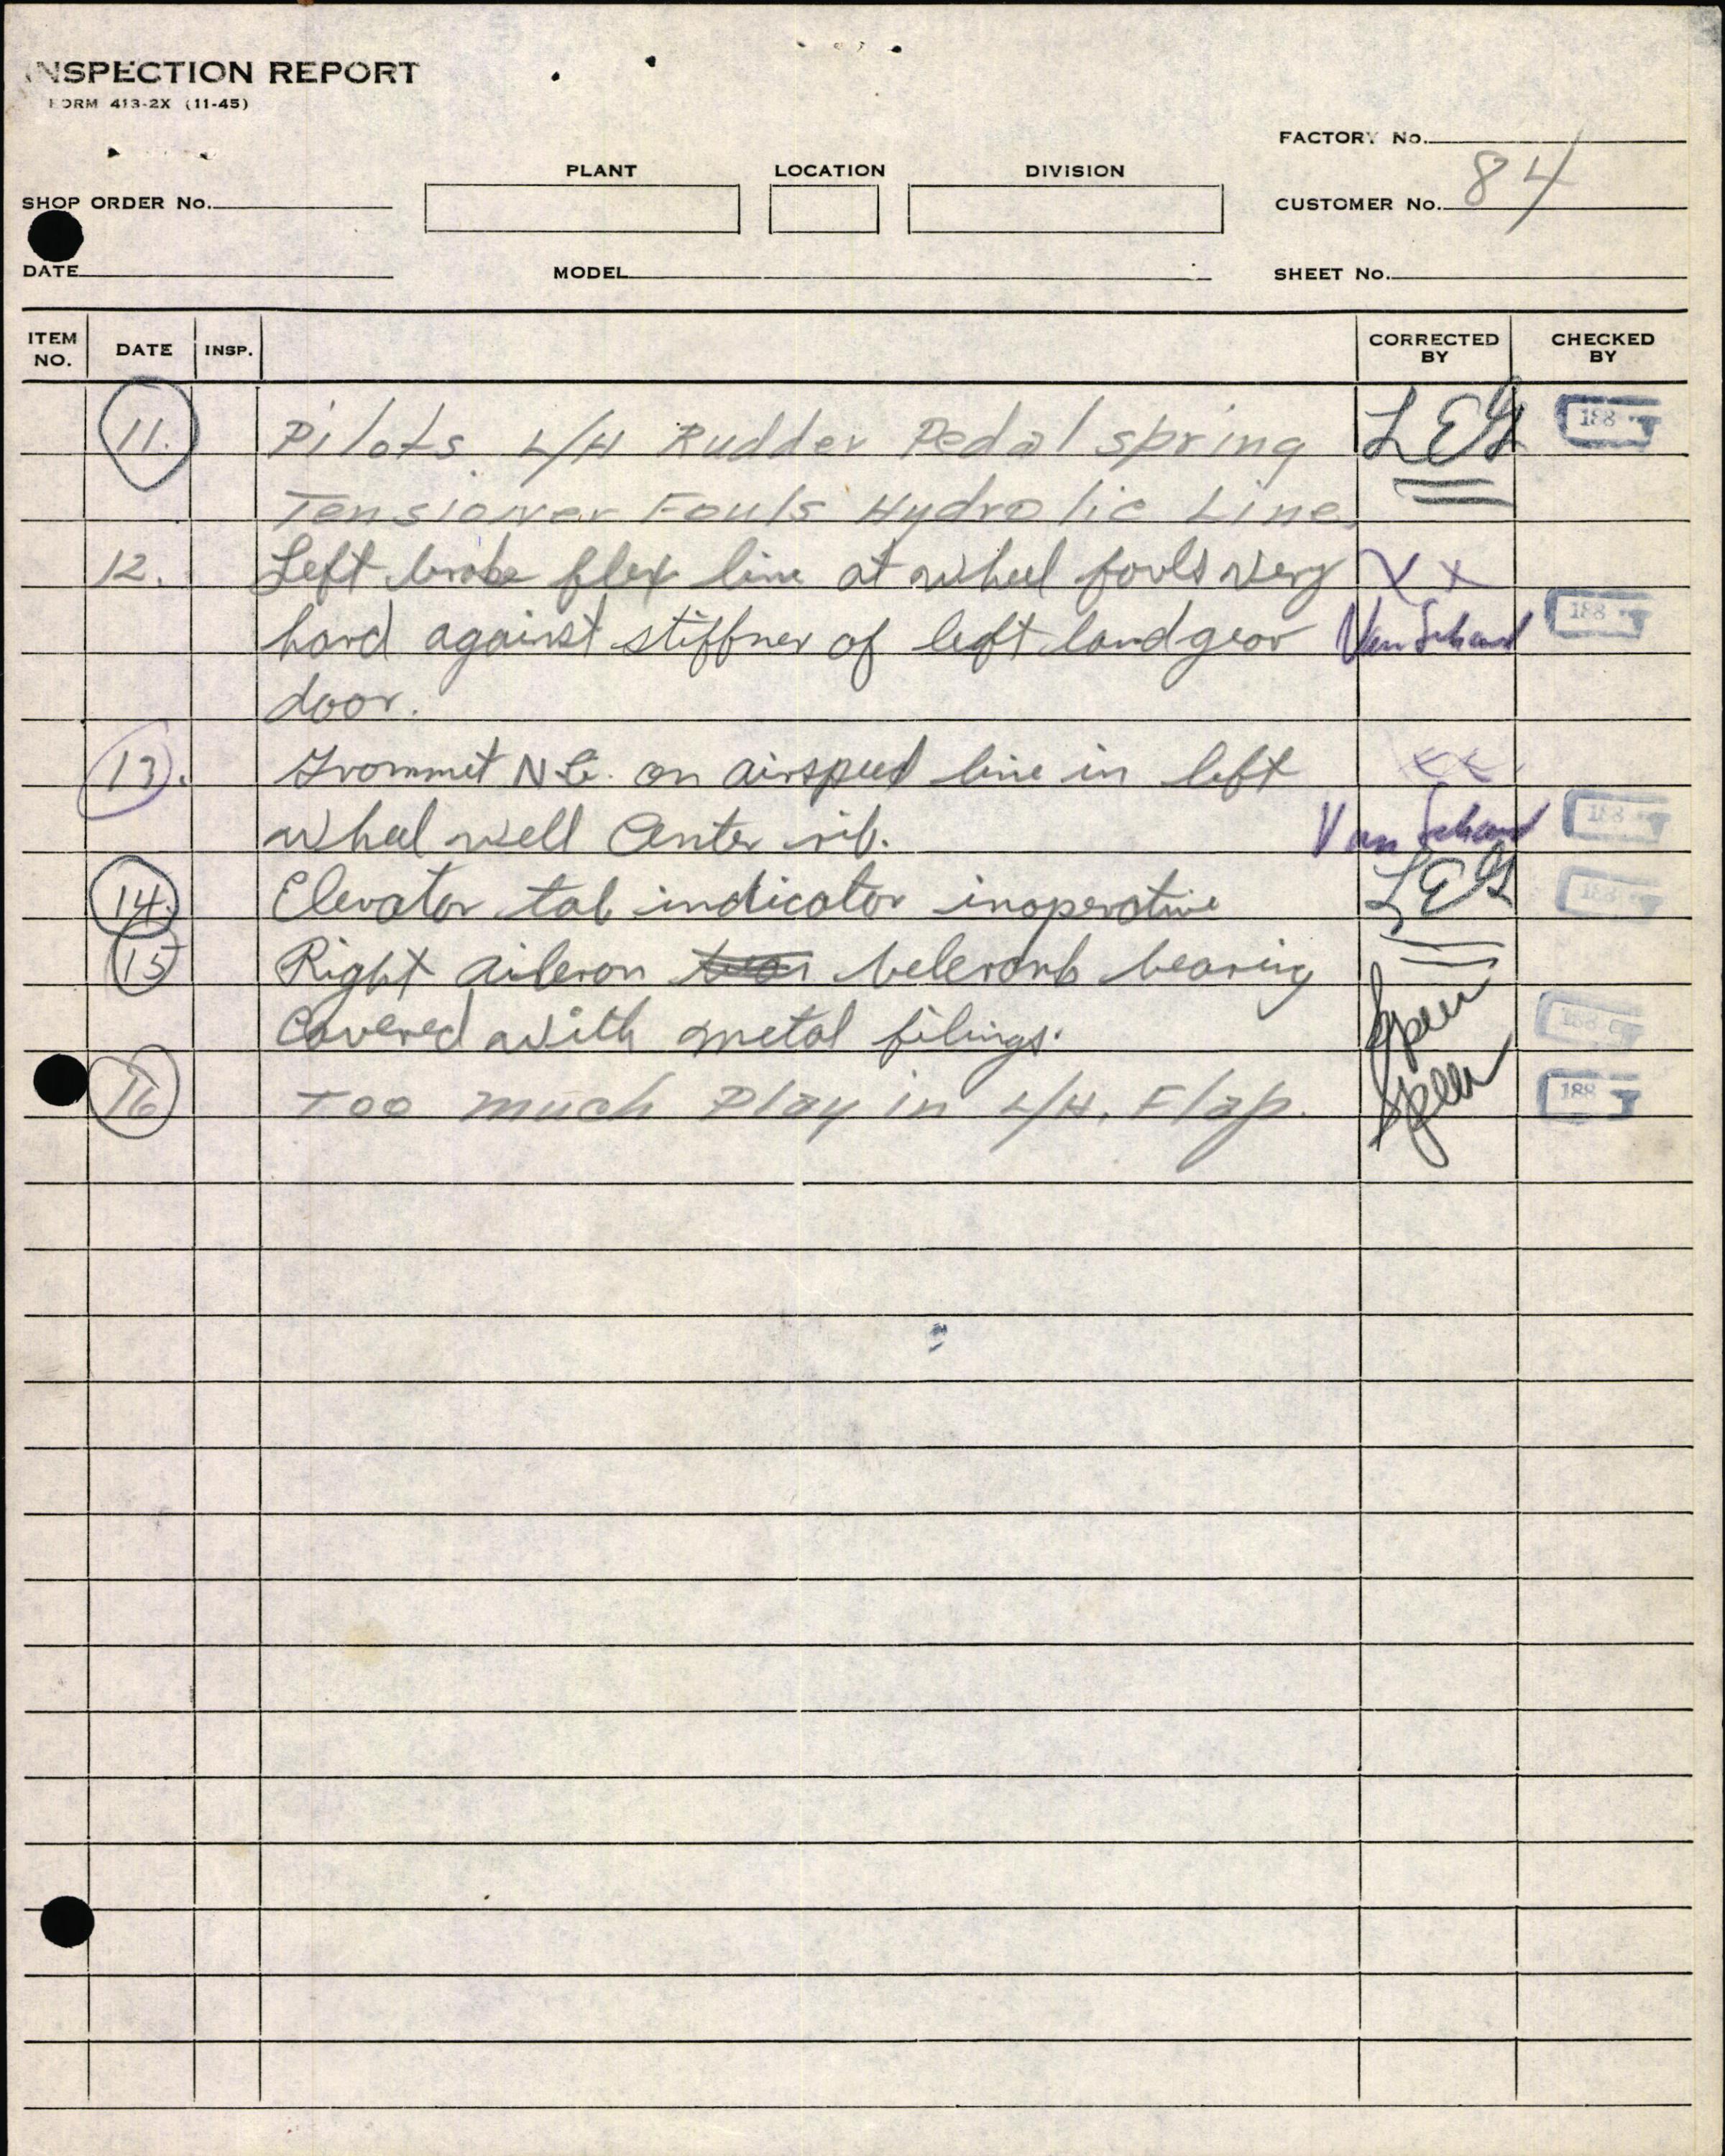 INSPECTION REPORT
FORM 413-2X (11-45)
FACTORY No.
PLANT LOCATION DIVISION
84
SHOP ORDER No. CUSTOMER No.
DATE MODEL SHEET No.
ITEM NO. DATE INSP. CORRECTED BY CHECKED BY
11. Pilots L/H Rudder Pedal spring LEG 188
Tensioner Fouls Hydrolic Line.
12. Left brake flex line at wheel fouls very XX
hard against stiffner of left land gear 188
door.
13. Grommet N.G. on airspeed line in left XX
wheel well Center rib. 188
14. Elevator tab indicator inoperative LEG 188
15 Right aileron belcrank bearing Speer
Covered with metal filings. 188
16 Too much Play in L/H. Flap. Speer 188